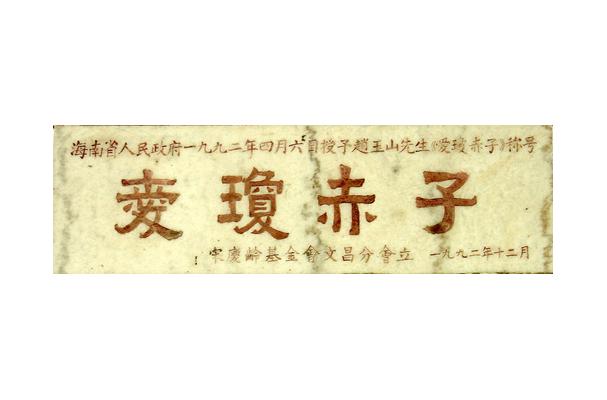 海南省人民政府一九九二年四月六日授予趙玉山先生《愛瓊赤子》称号
愛瓊赤子
宋慶齡基金會文昌分會立 一九九二年十二月